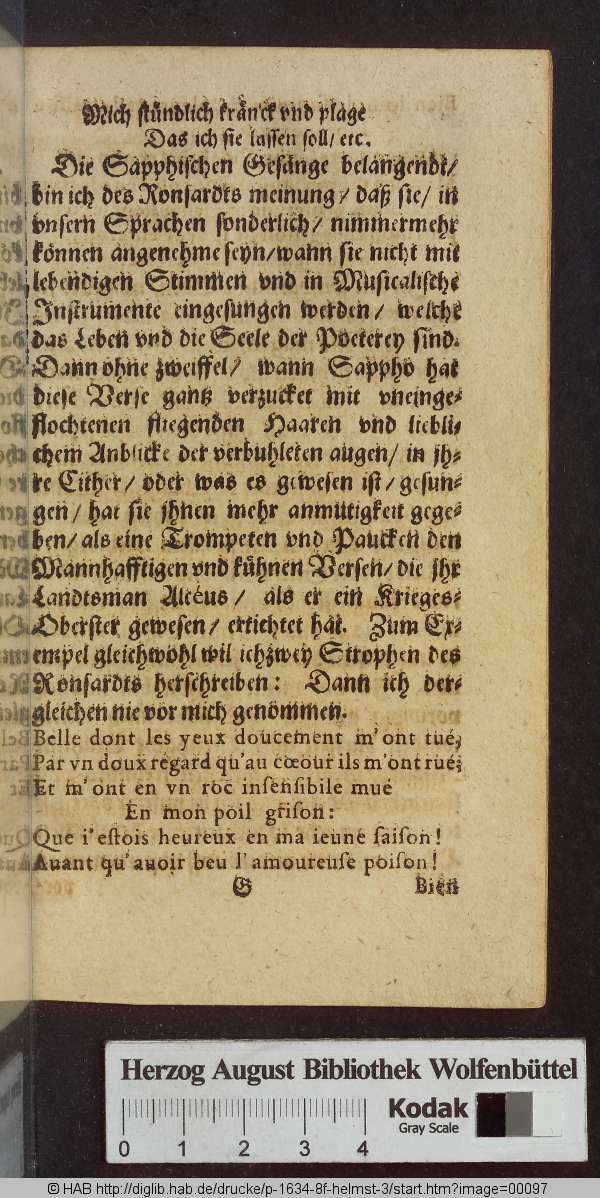 Mich stündlich kränck vnd plage
Das ich sie lassen soll/ etc.
Die Sapphischen Gesänge belangendt/
bin ich des Ronsardts meinung/ daß sie/ in
vnsern Sprachen sonderlich/ nimmermehr
können angenehme seyn/wann sie nicht mit
lebendigen Stimmen vnd in Musicalische
Instrumente eingesungen werden/ welche
das Leben vnd die Seele der Poeterey sind.
Dann ohne zweiffel/ wann Sappho hat
diese Verse gantz verzucket mit vneinge-
flochtenen fliegenden Haaren vnd liebli-
chem Anblicke der verbuhleten augen/ in jh-
re Cither/ oder was es gewesen ist/ gesun-
gen/ hat sie jhnen mehr anmütigkeit gege-
ben/ als eine Trompeten vnd Paucken den
Mannhafftigen vnd kühnen Versen/ die jhr
Landtsman Alcéus/ als er ein Krieges-
Oberster gewesen/ ertichtet hat. Zum Ex-
empel gleichwohl wil ich zwey Strophen des
Ronsardts herschreiben: Dann ich der-
gleichen nie vor mich genommen.
Belle dont les yeux doucement m'ont tué,
Par vn doux regard qu'au cœour ils m'ont rué;
Et m'ont en vn roc insensibile mué
En mon poil grison:
Que i'estois heureux en ma ieune saison!
Auant qu'auoir beu l'amoureuse poison!
G Bien
Herzog August Bibliothek Wolfenbüttel
0 1 2 3 4 Kodak
Gray Scale
© HAB http://diglib.hab.de/drucke/p-1634-8f-helmst-3/start.htm?image=00097